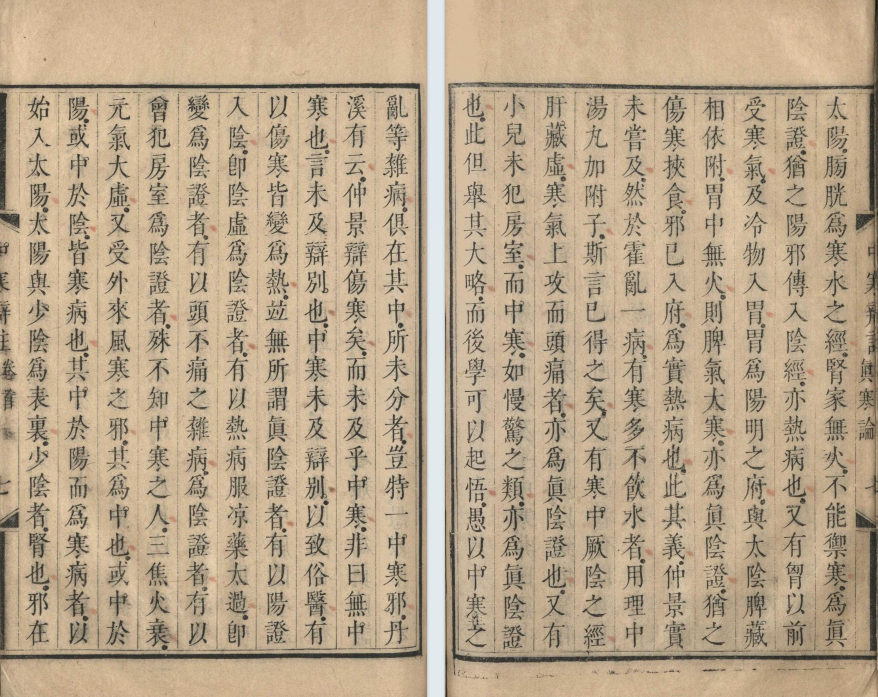 亂等雜病。俱在其中。所未分者。豈特一中寒邪。丹
溪有云。仲景辯傷寒矣。而未及乎中寒。非曰無中
寒也。言未及辯別也。中寒未及辯別。以致俗醫。有
以傷寒皆變爲熱。竝無所謂眞陰證者。有以陽證
入陰。卽陰虛爲陰證者。有以熱病服凉藥太過。卽
變爲陰證者。有以頭不痛之雜病。爲陰證者。有以
曾犯房室爲陰證者。殊不知中寒之人。三焦火衰。
元氣大虛。又受外來風寒之邪。其爲中也。或中於
陽。或中於陰。皆寒病也。其中於陽而爲寒病者。以
始入太陽。太陽與少陰爲表裏。少陰者。腎也。邪在
卷首
七
眞寒論
太陽。膀胱爲寒水之經。腎家無火。不能禦寒。爲眞
陰證。猶之陽邪傳入陰經。亦熱病也。又有胃以前
受寒氣。及冷物入胃。胃爲陽明之府。與太陰脾藏
相依附。胃中無火。則脾氣大寒。亦爲眞陰證。猶之
傷寒挾食。邪已入府。爲實熱病也。此其義。仲景實
未嘗及。然於霍亂一病。有寒多不飲水者。用理中
湯丸加附子。斯言已得之矣。又有寒中厥陰之經
肝藏虛。寒氣上攻而頭痛者。亦爲眞陰證也。又有
小兒未犯房室。而中寒。如慢驚之類。亦爲眞陰證
也。此但舉其大略。而後學可以起悟。愚以中寒之